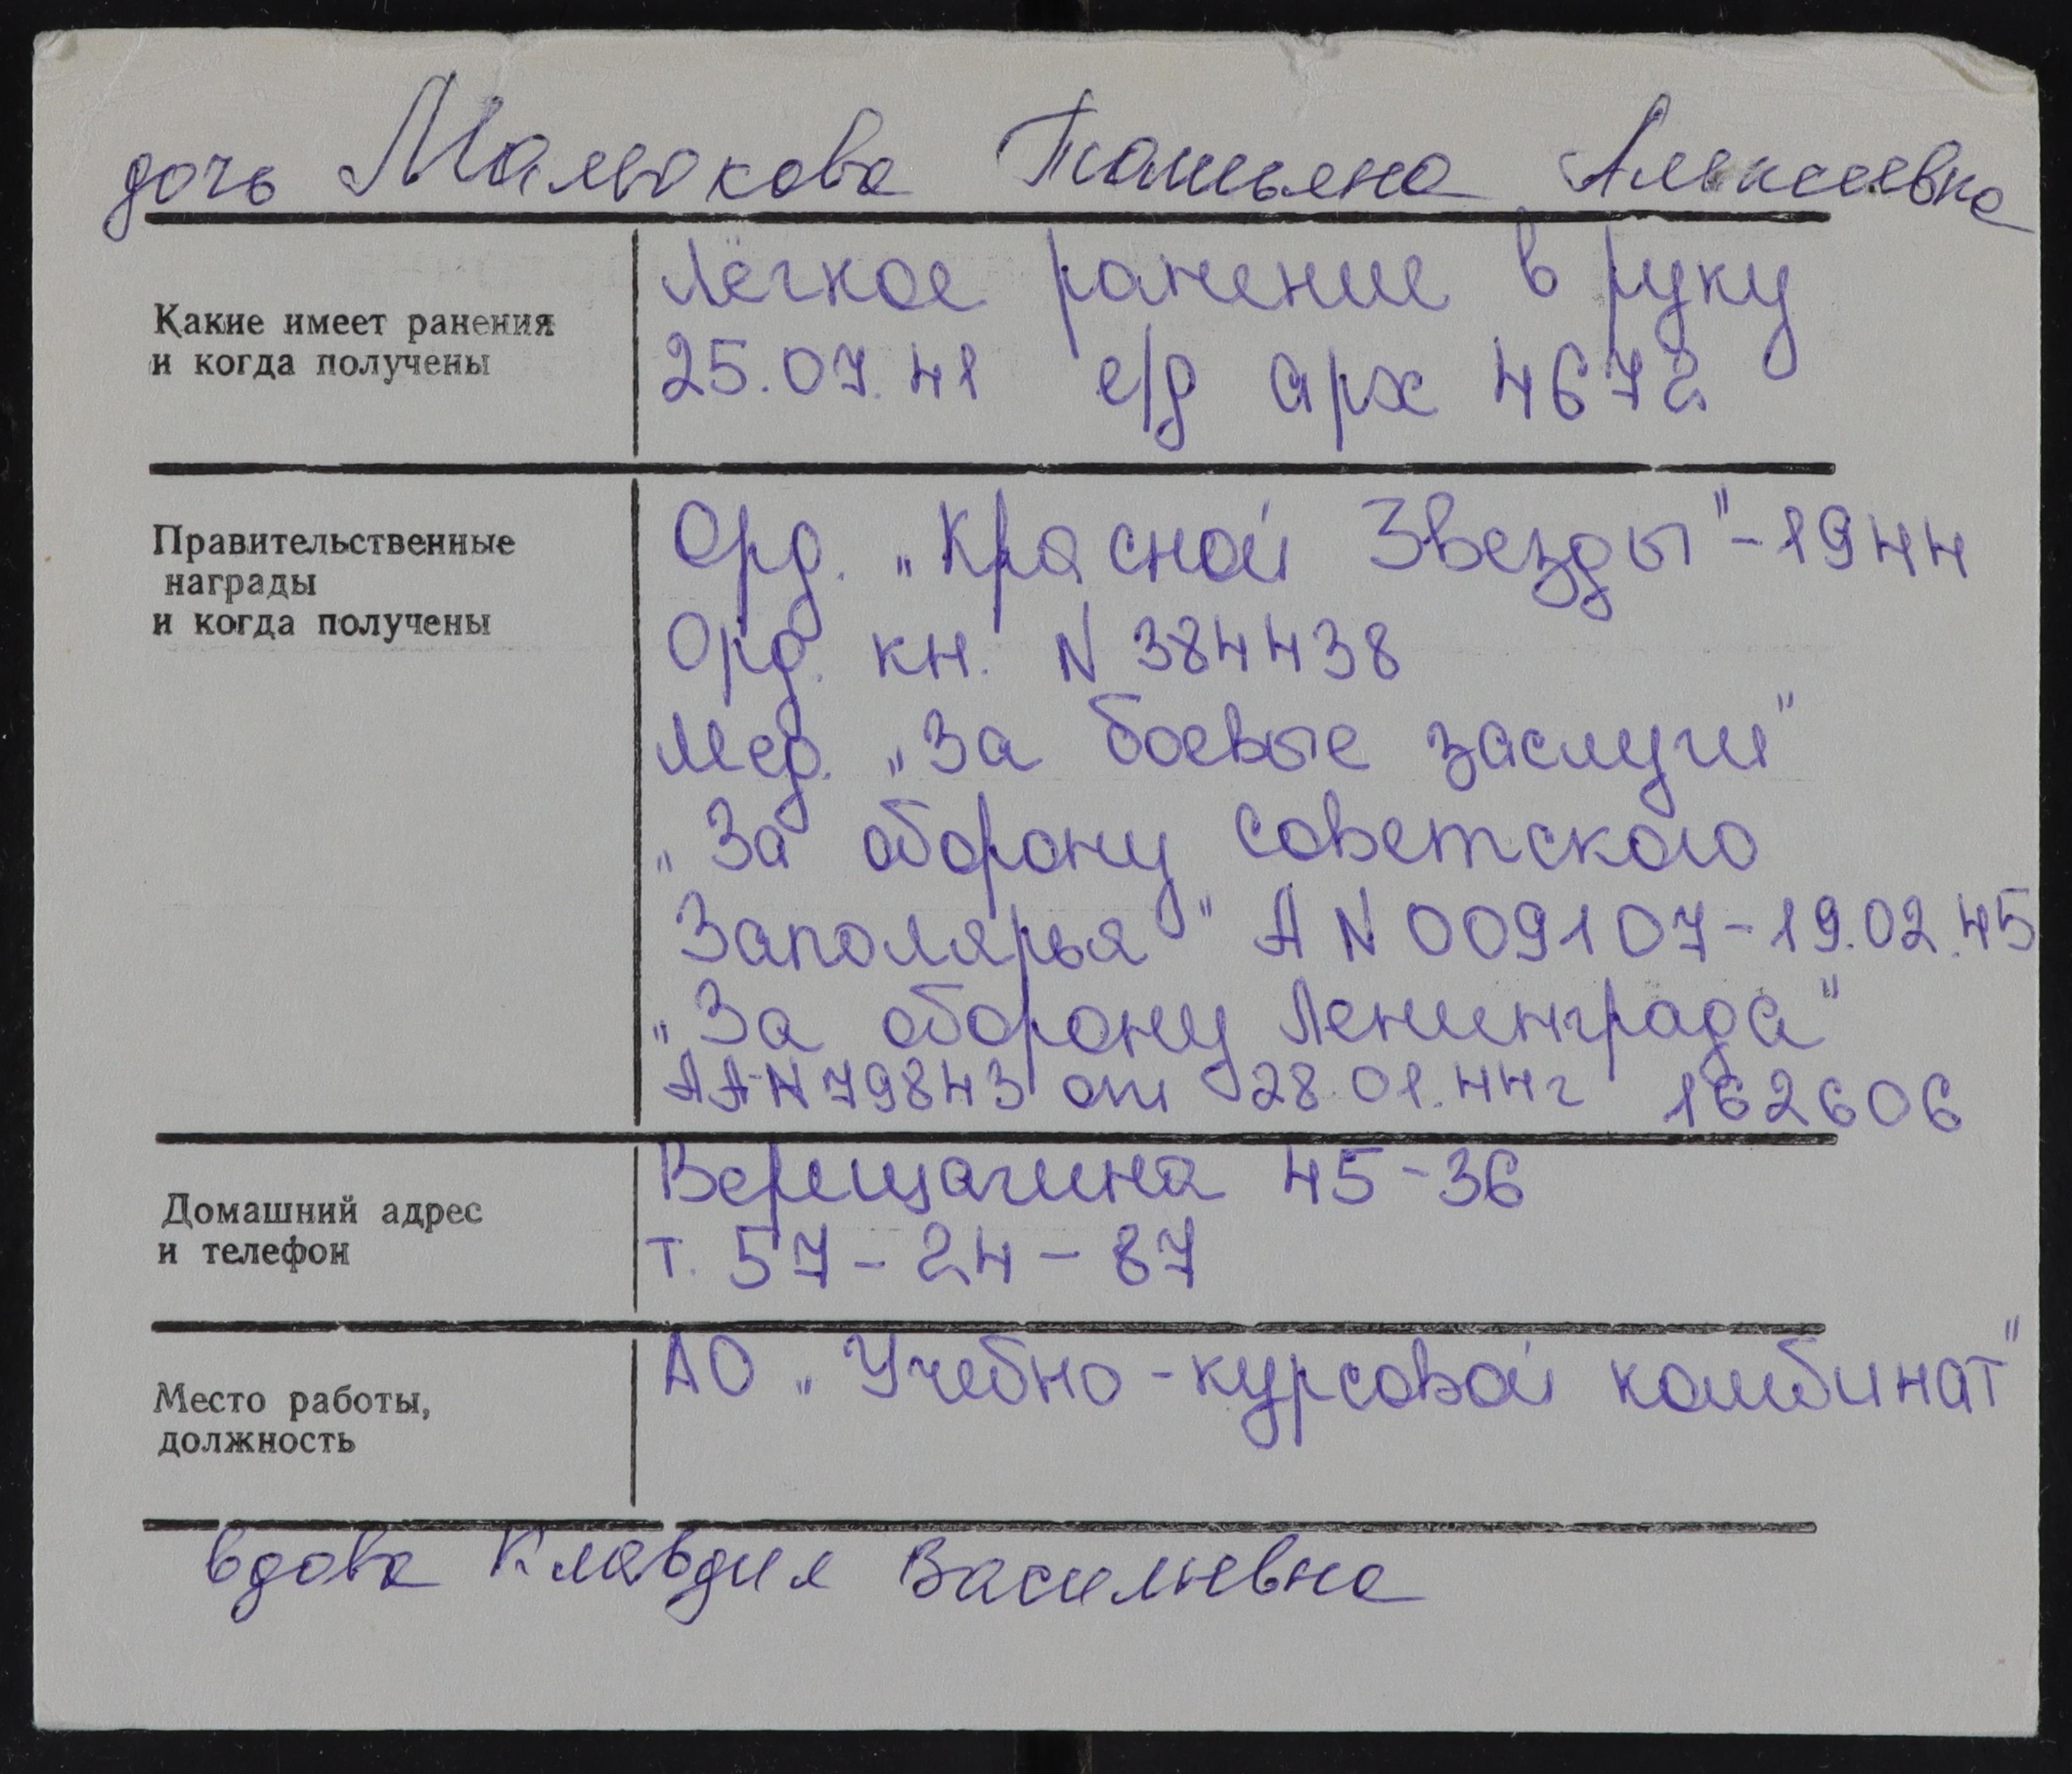 дочь Малькова Татьяна Алексеевна
Какие имеет ранения
и когда получены
лёгкое ранение в руку
25.07.41 с/д арх 4672
Правительственные
награды
и когда получены
Орд. „Красной Звезды" - 1944
Орд. кн. N 384438
Мед. „За боевые заслуги"
„За оборону советского
Заполярья" А N 009107 - 19.02.45
„За оборону Ленинграда"
АА-N 79843 от 28.01.44г 162606
Домашний адрес
и телефон
Верещагина 45-36
т. 57-24-87
Место работы,
должность
АО „Учебно-курсовой комбинат"
вдова Клавдия Васильевна